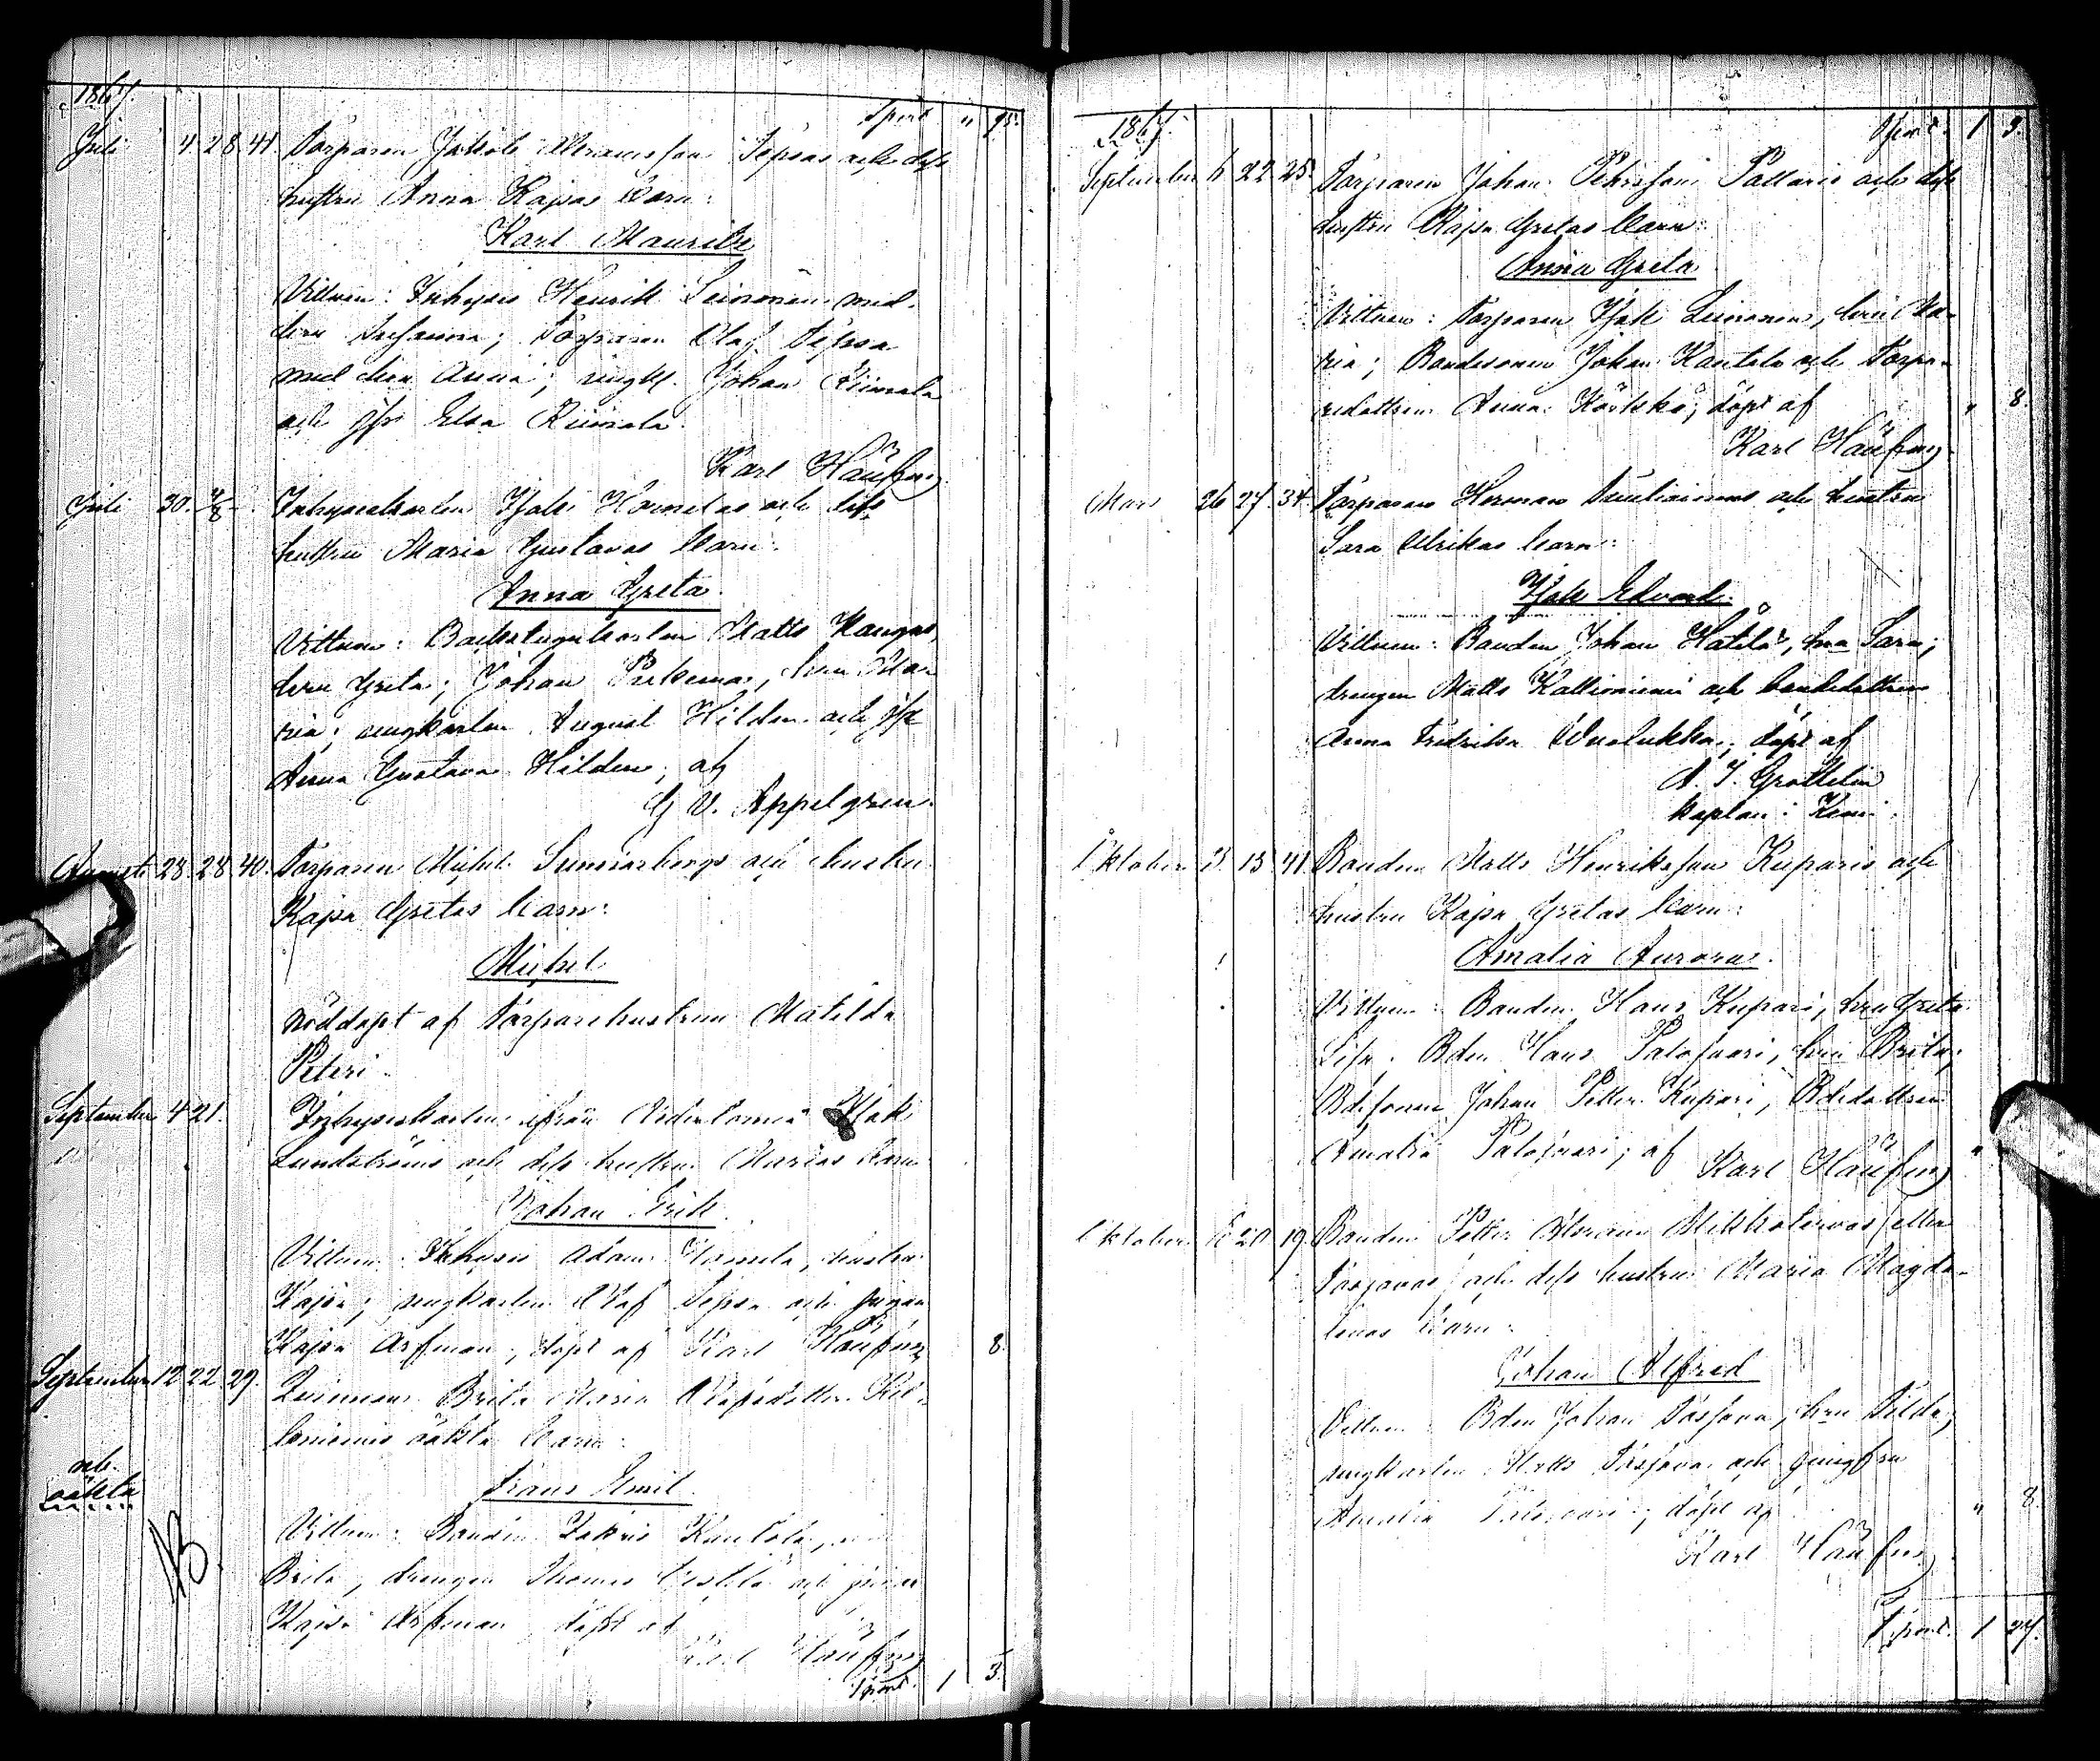 1867.
Sport " 95.
Juli 4. 28. 41. Torparen Jakob Abramsson Sipsas och dess
hustru Anna Kajsas barn:
Karl Mauritz
Vittnen: Inhyses Henrik Leinonen med
hru Susanna; Torparen Olaf Sipsa
med hru Anna; yngkl. Johan Riimala
och jgfr Elsa Riimala.
Karl Häufne
Juli 30. 4/8 Inhyseskarlen Isak Hamelas och dess
hustru Maria Gustavas barn:
Anna Greta.
Vittnen: Backstugukarlen Matts Kangas,
hru Greta; Johan, hru Ma-
ria; yngkarlen August Hilden och jgfr
Anna Gustava Hilden; af
G V. Appelgren.
Augusti 28. 28. 40. Torparen Michel Sunnarborgs och hustru
Kajsa Gretas barn:
Michel
Nöddöpt af Torparehustrun Matilda
Peteri.
September 4 21. Inhyseskarlen ifrån Nedertorneå Isak
Lundströms och dess hustru Marias barn
Johan Erik.
Vittnen: Inhyses Adam Hamela, hustru
Kajsa; yngkarlen Olaf Sipsa och pigan
Kajsa Arfman; döpt af Karl Häufne 8.
September 12 22. 29. Qvinnan Brita Maria Olofsdotter
oäkta barn:
neb.
oäkta
Frans Emil.
Vittnen: Bonden Zakris Kantola,
Brita, drengen Thomas och pigan
Kajsa Arfman, döpt af
Karl Häufne
Sport. 1 3.
1867.
Sport. 1 3.
September 6 22 25 Torparen Johan Pehrsson Pallaris och dess
hustru Kajsa Gretas barn:
Anna Greta
Vittnen: Torparen Isak Leinonen, hru Ma-
ria; Bondesonen Johan Kantola och Torpa-
redottren Anna Körkkö; döpt af " 8.
Karl Häufne
Mars 26 27. 34. Torparen Herman och hustru
Sara Ulrikas barn:
Isak Edvard.
Vittnen: Bonden Johan Hatila, hru Sara;
drengen Matts Kallioniemi och bondedottren
Anna Fredrika Wuolukka; döpt af
A. J. Grottelin
kaplan i Kemi.
Oktober 3. 13. 41. Bonden Matts Henriksson Kuparis och
hustru Kajsa Gretas barn:
Amalia Aurora.
Vittnen: Bonden Hans Kupari, hru Greta
Lisa; Bden Hans Palojuari, hru Brita;
Bdesonen Johan Petter Kupari, Bdedottren
Amalia Palojuari; af "
Karl Häufne
Oktober 20 19. Bonden Petter Abram eller
och dess hustru Maria Magda-
lenas barn:
Johan Alfred
Vittnen: Bden Johan, hru Tilda,
yngkarlen Matts och jungfru
Amalia; döpt af " 8.
Karl Häufne
Sport. 1 27.